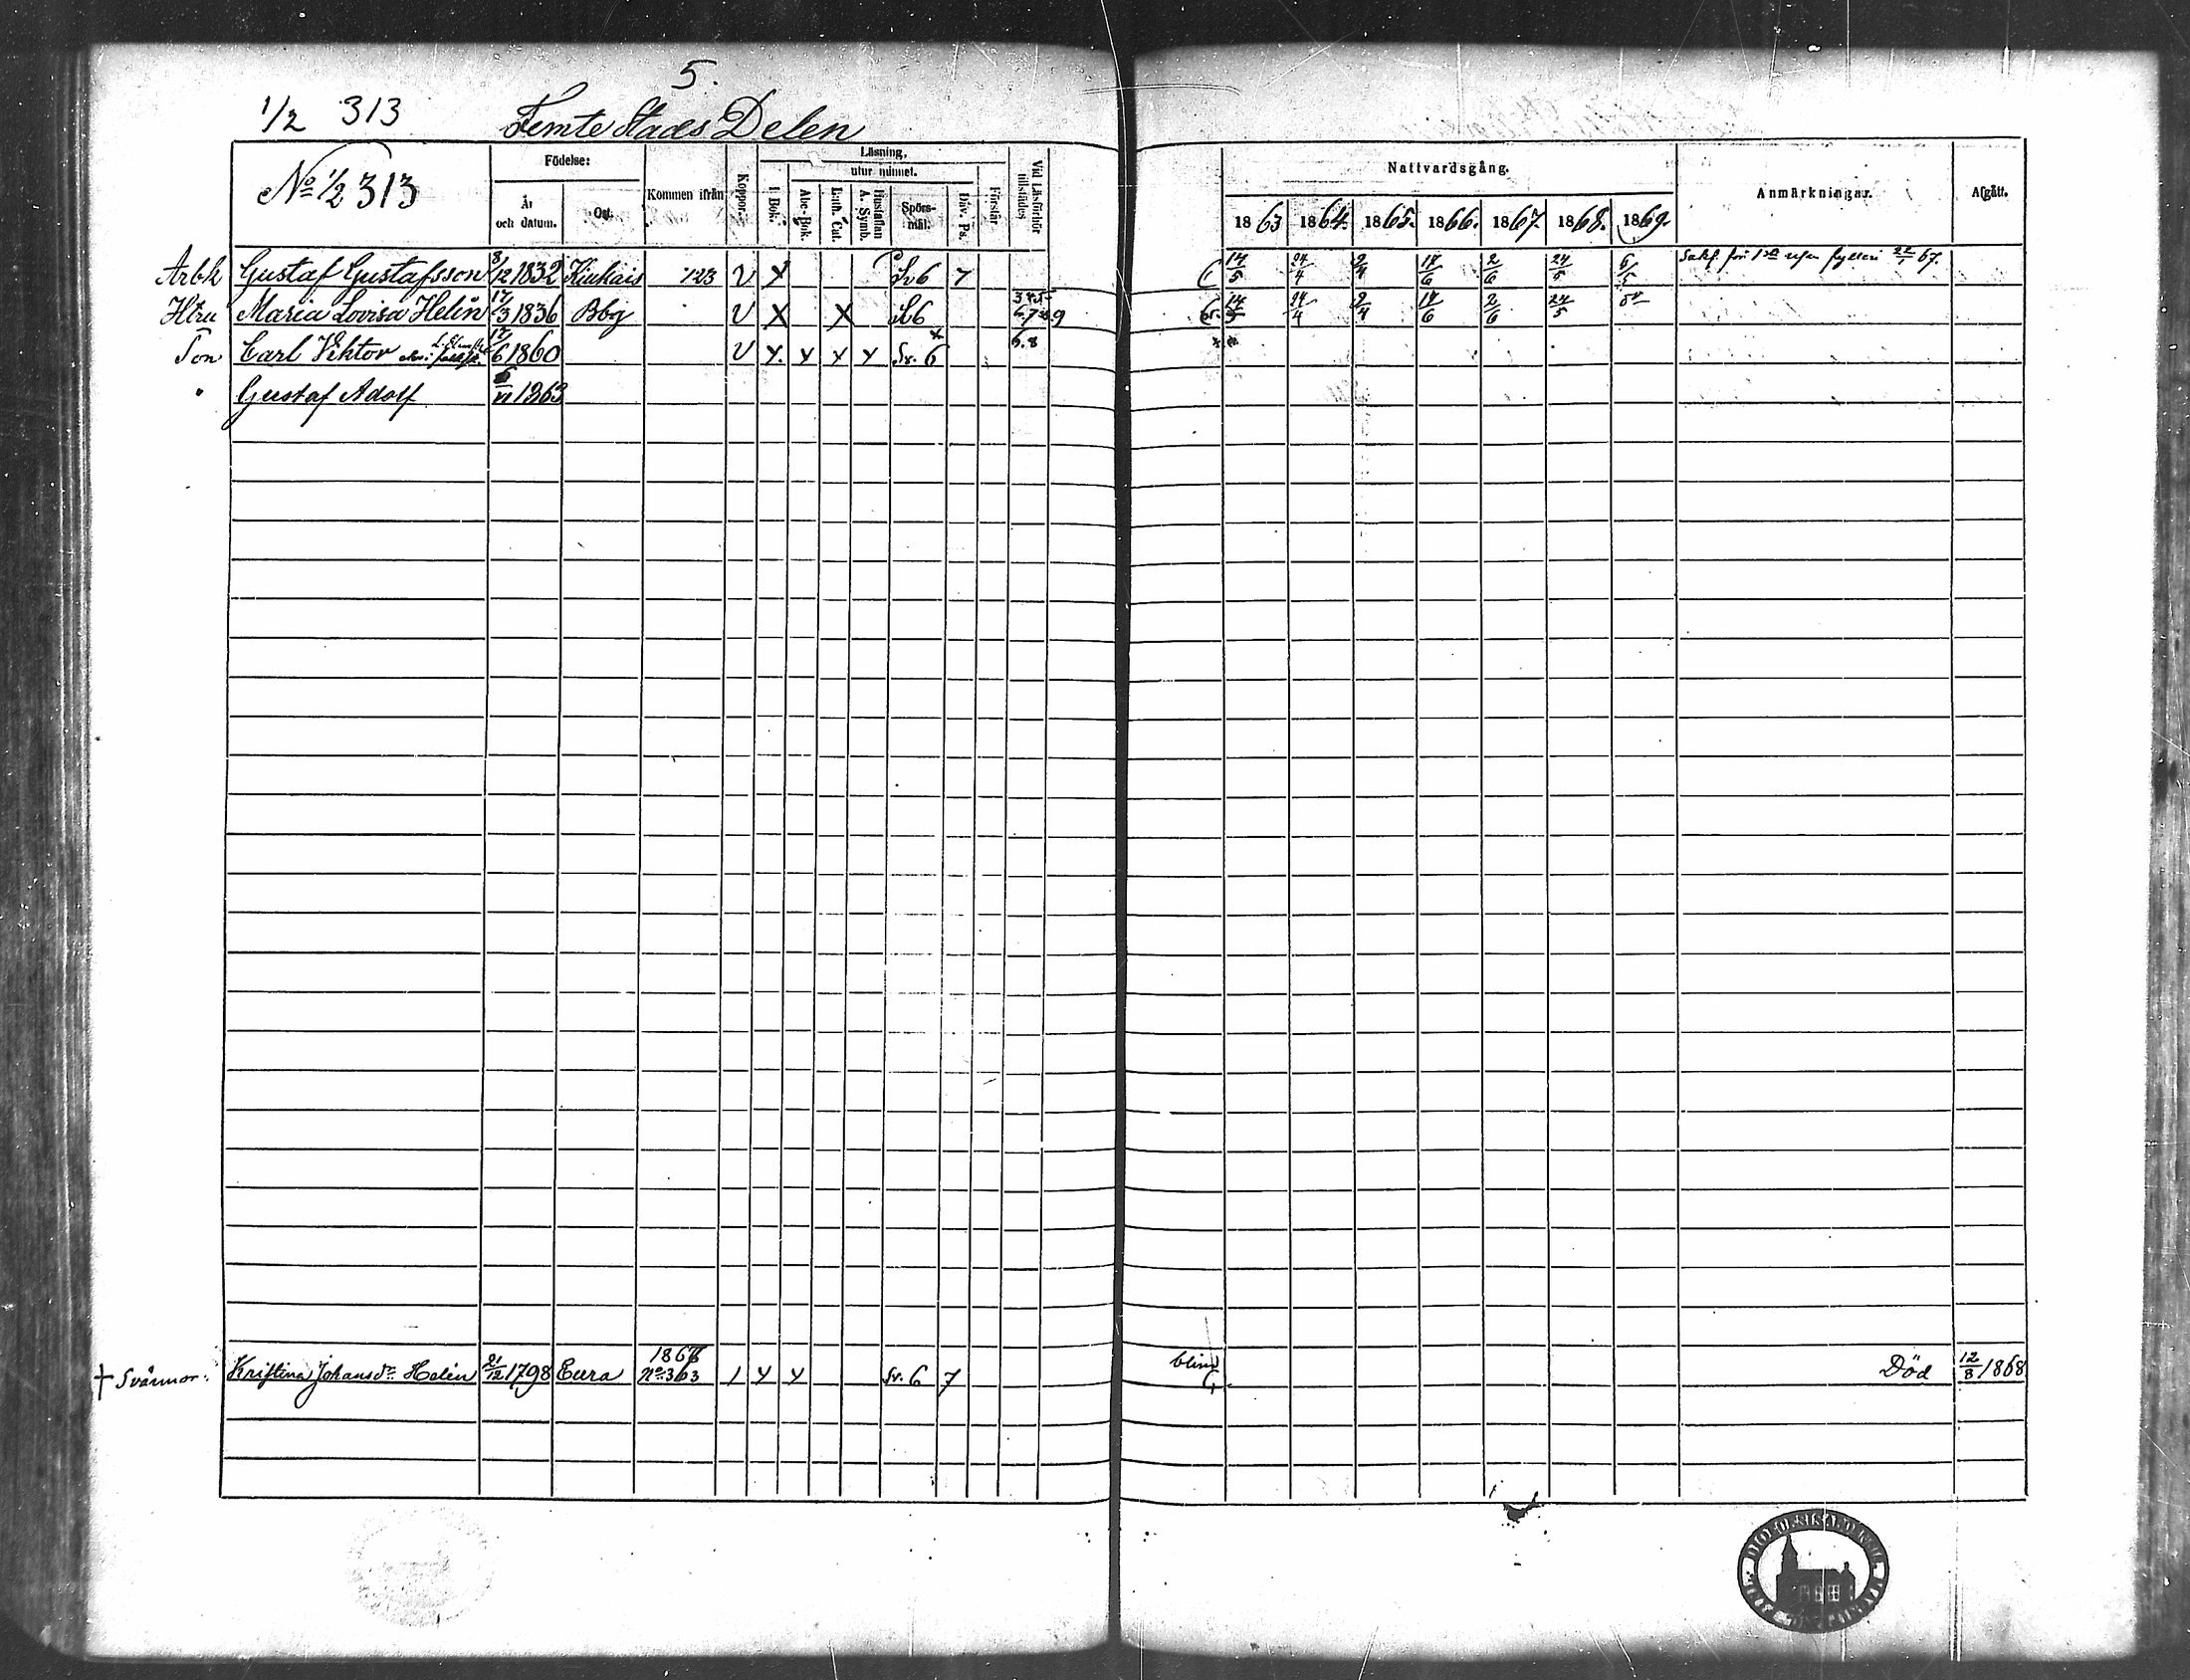 5.
1/2 313 Femte Stads Delen
No 1/2 313
Födelse:
År och datum.
Ort.
Kommen ifrån
Koppor.
Läsning,
utur minnet.
I Bok.
Abc-Bok.
Luth. Cat.
Hustaflan A. Symb.
Spörsmål.
Dav. Ps.
Förstår.
Vid Läsförhör tillstädes
Nattvardsgång.
1863 1864. 1865. 1866. 1867. 1868. 1869.
Anmärkningar.
Afgått.
Arbk Gustaf Gustafsson 8/12 1832 Kiukais 123 V X Sv 6 7 14/5 24/4 2/4 17/6 2/6 24/5 6/5 22/1 67.
Htru Maria Lovisa Helin 17/3 1836 Bbg V X X Sv 6 14/5 24/4 2/4 17/6 2/6 24/5
Son Carl Viktor 17/6 1860 V x x x x Sv. 6 6.8
" Gustaf Adolf 1863
† Svärmor: Kristina Johansdr Helén 21/12 1798 Eura 1867 No 363 1 x x Sv. 6 7 blind Död 12/8 1868